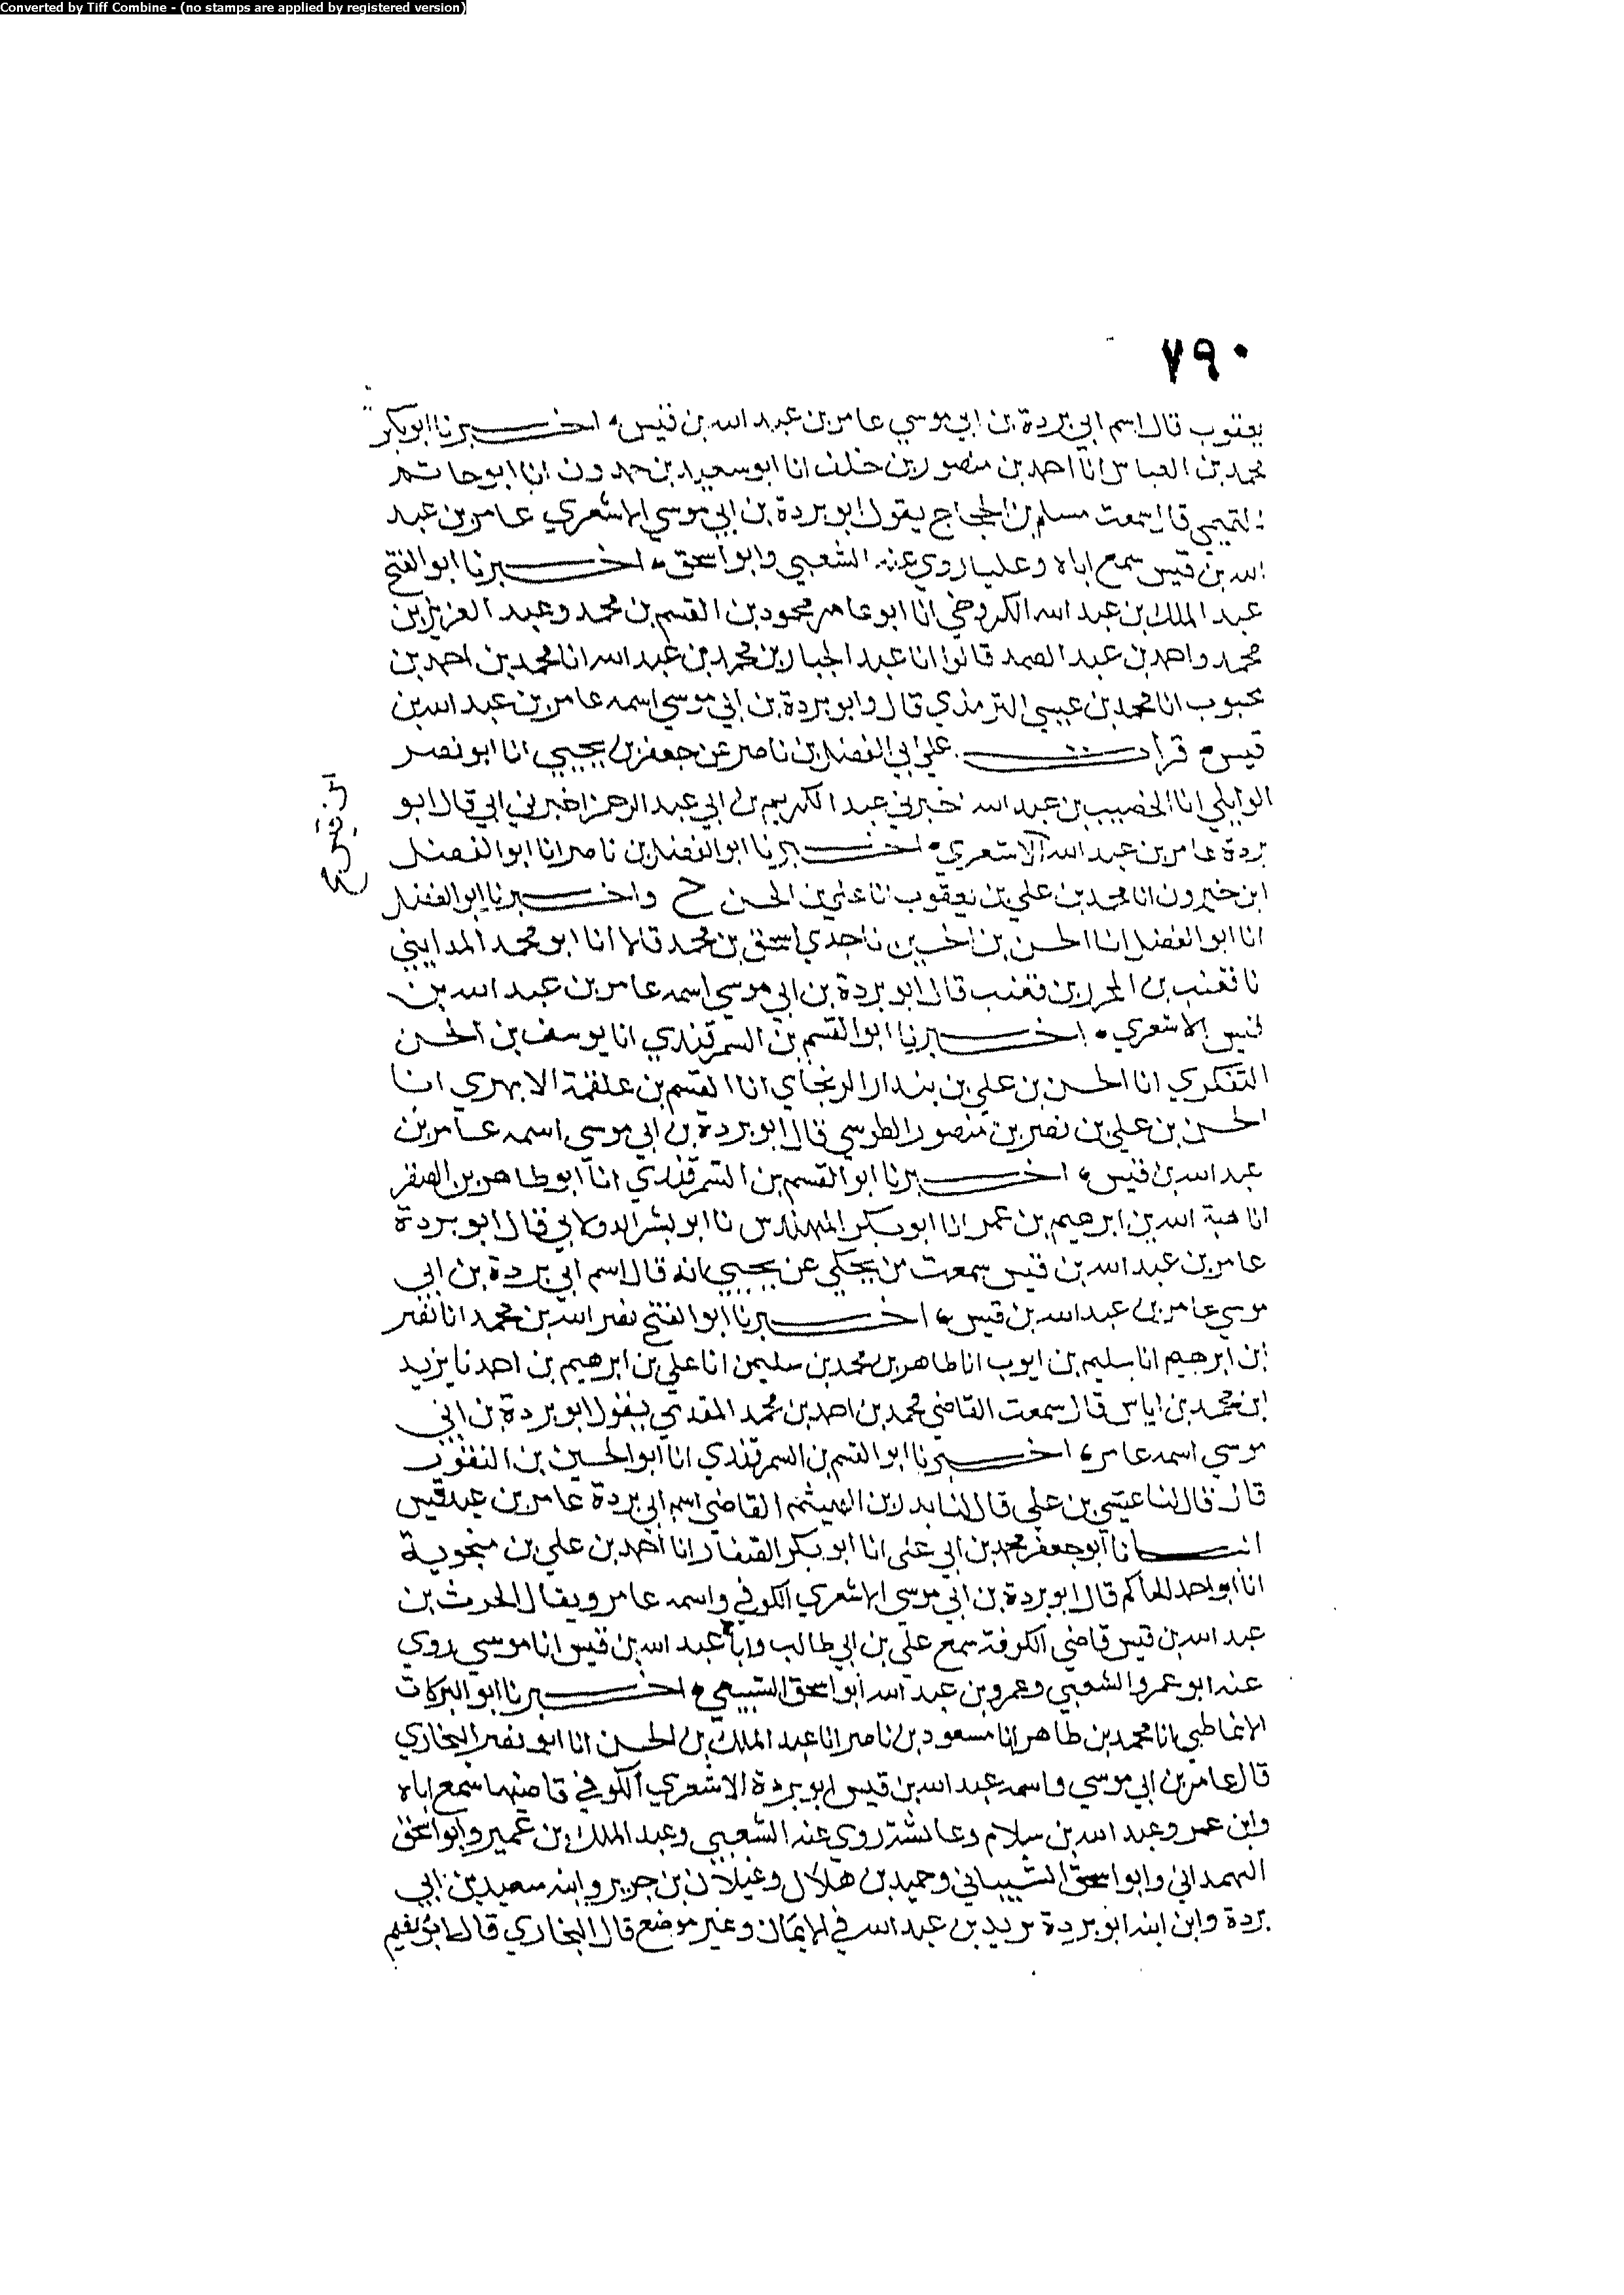 Converted by Tiff Combine - (no stamps are applied by registered version)
٧٩٠
يعقوب قال اسم ابي بردة بن ابي موسي عامر بن عبد الله بن قيس، اخبرنا ابو بكر
محمد بن العباس انا احمد بن منصور بن خلف انا ابو سعيد بن حمدون انا ابو حاتم
التميمي قال سمعت مسلم بن الحجاج يقول ابو بردة بن ابي موسي الاشعري عامر بن عبد
الله بن قيس سمع اباه وعليا روي عنه الشعبي وابو اسحق، اخبرنا ابو الفتح
عبد الملك بن عبد الله الكروخي انا ابو عامر محمود بن القسم بن محمد وعبد العزيز بن
محمد واحمد بن عبد الصمد قالوا انا عبد الجبار بن محمد بن عبد الله انا محمد بن احمد بن
محبوب انا محمد بن عيسي الترمذي قال وابو بردة بن ابي موسي اسمه عامر بن عبد الله بن
قيس قرات علي ابي الفضل بن ناصر عن جعفر بن يحيي انا ابو نصر
الوايلي انا الخصيب بن عبد الله اخبرني عبد الكريم بن ابي عبد الرحمن اخبرني ابي قال ابو
بردة عامر بن عبد الله الاشعري، اخبرنا ابو الفضل بن ناصر انا ابو الفضل
بن قيس صح
ابن خيرون انا محمد بن علي بن يعقوب انا علي بن الحسن ح واخبرنا ابو الفضل
انا ابو الفضل انا الحسن بن الحسين نا جدي اسحق بن محمد قالا انا ابو محمد المدايني
نا قعنب بن المحرر بن قعنب قال ابو بردة بن ابي موسي اسمه عامر بن عبد الله بن
قيس الاشعري، اخبرنا ابو القسم بن السمرقندي انا يوسف بن الحسن
التفكري انا الحسن بن علي بن بندار الزنجاي انا القسم بن علقمة الابهري انا
الحسن بن علي بن نصر بن منصور الطوسي قال ابو بردة بن ابي موسي اسمه عامر بن
عبد الله بن قيس، اخبرنا ابو القسم بن السمرقندي انا ابو طاهر بن الصقر
انا هبة الله بن ابرهيم بن عمر انا ابو بكر المهندس نا ابو بشر الدولابي قال ابو بردة
عامر بن عبد الله بن قيس سمعت من يحكي عن يحيي انه قال اسم ابي بردة بن ابي
موسي عامر بن عبد الله بن قيس، اخبرنا ابو الفتح نصر الله بن محمد انا نصر
ابن ابرهيم انا سليم بن ايوب انا طاهر بن محمد بن سليمن انا علي بن ابرهيم بن احمد نا يزيد
ابن محمد بن اياس قال سمعت القاضي محمد بن احمد بن محمد المقدمي يقول ابو بردة بن ابي
موسي اسمه عامر، اخبرنا ابو القسم بن السمرقندي انا ابو الحسين بن النقور
قال قال لنا عيسي بن علي قال لنا بدر بن الهيثم القاضي اسم ابي بردة عامر بن عبد قيس
انبانا ابو جعفر محمد بن ابي علي انا ابو بكر الصفار انا احمد بن علي بن منجوية
انا ابو احمد الحاكم قال ابو بردة بن ابي موسي الاشعري الكوفي واسمه عامر ويقال الحرث بن
عبد الله بن قيس قاضي الكوفة سمع علي بن ابي طالب واباه عبد الله بن قيس انا موسي روي
عنه ابو عمرو الشعبي وعمرو بن عبد الله ابو اسحق السبيعي، اخبرنا ابو البركات
الانماطي انا محمد بن طاهر انا مسعود بن ناصر انا عبد الملك بن الحسن انا ابو نصر البخاري
قال عامر بن ابي موسي واسمه عبد الله بن قيس ابو بردة الاشعري الكوفي قاضيها سمع اباه
وابن عمر وعبد الله بن سلام وعائشة روي عنه الشعبي وعبد الملك بن عمير وابو اسحق
الهمداني وابو اسحق الشيباني وحميد بن هلال وغيلان بن جرير وابنه سعيد بن ابي
بردة وابن ابنه ابو بردة بريد بن عبد الله في الايمان وغير موضع قال البخاري قال ابو نعيم